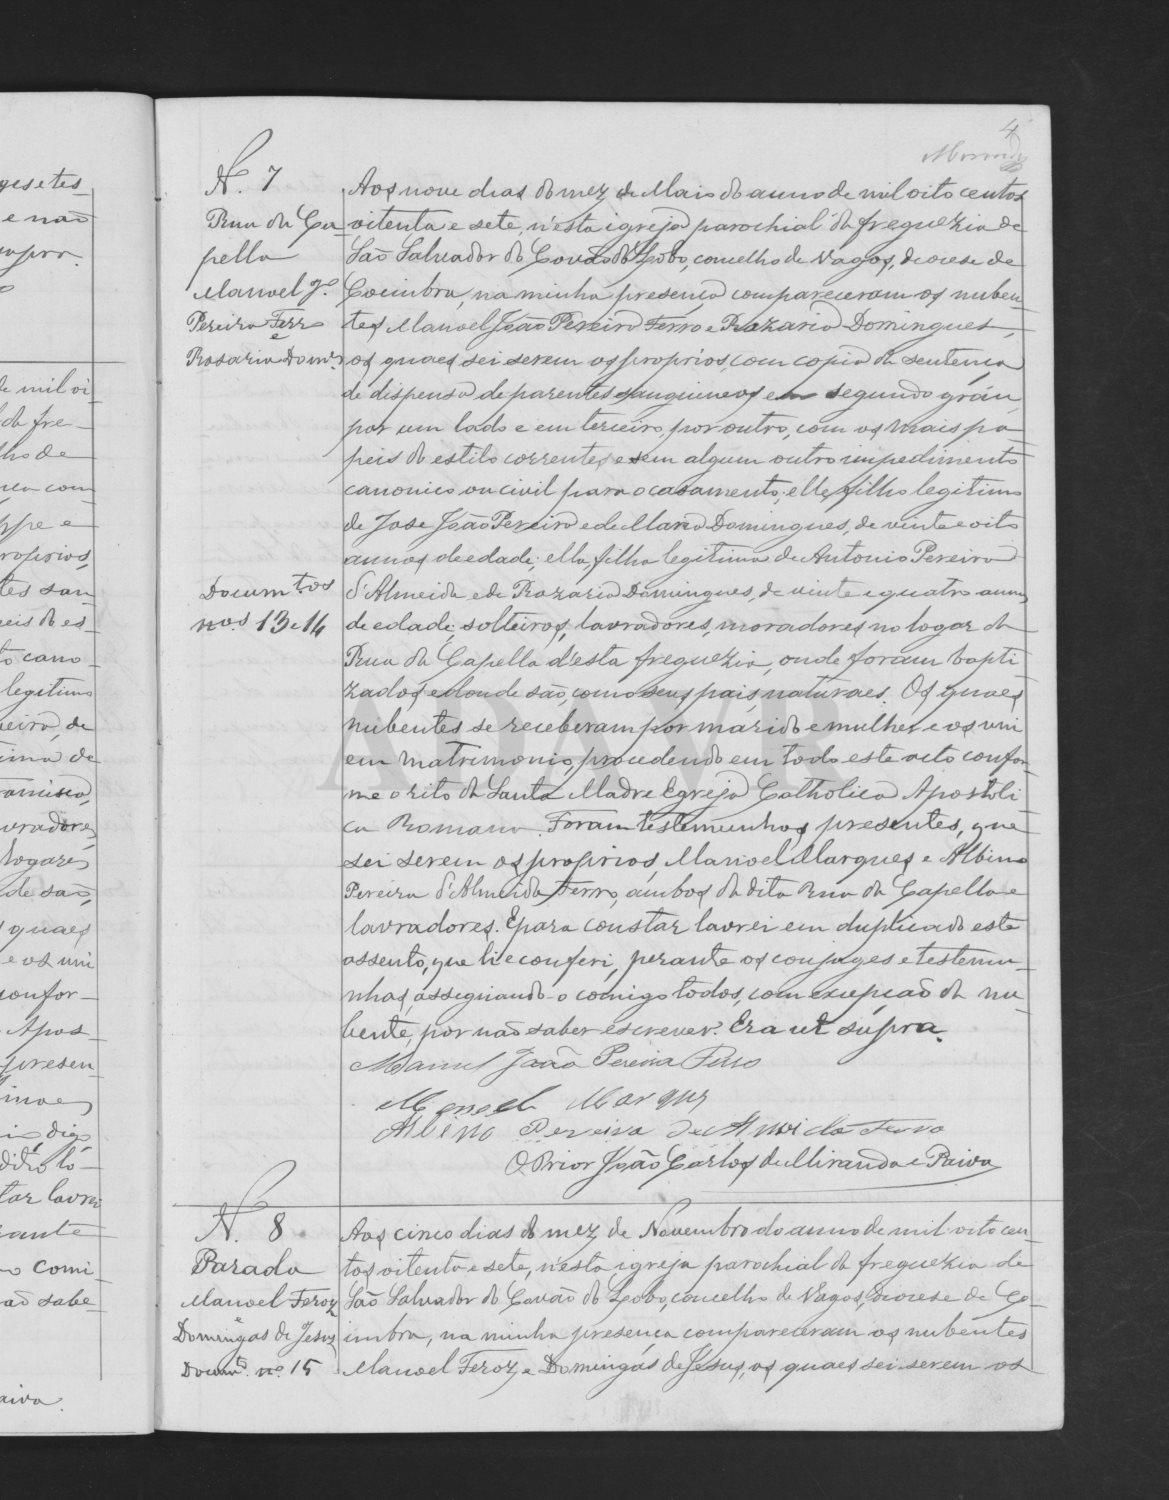 4
Miranda
N. 7
Rua da Ca-
pella
Manoel J.º
Pereira Ferro
e
Rosaria Dom.es
Documtos
nos. 13 e 14
Aos nove dias do mez de Maio do anno de mil oito centos
oitenta e sete, n'esta igreja parochial da freguezia de
São Salvador do Covão do Lobo, concelho de Vagos, diocese de
Coimbra, na minha presença compareceram os nuben-
tes Manoel João Pereira Ferro e Rozaria Domingues,
os quaes sei serem os proprios, com copia da sentença
de dispensa de parentes sanguineos em segundo gráu
por um lado e em terceiro, por outro, com os mais pa-
peis do estilo correntes e sem algum outro impedimento
canonico ou civil para o casamento; elle, filho legitimo
de Jose João Pereira e de Maria Domingues, de vinte e oito
annos de edade; ella, filha legitima de Antonio Pereira
d'Almeida e de Rozaria Domingues, de vinte e quatro annos
de edade; solteiros, lavradores, moradores no logar da
Rua da Capella d'esta freguezia, onde foram bapti-
zados e donde são, como seus pais, naturaes. Os quaes
nubentes se receberam por marido e mulher e os uni
em matrimonio, procedendo em todo este acto confor-
me o rito da Santa Madre Egreja Catholica Apostoli-
ca Romana. Foram testemunhas presentes, que
sei serem os proprios, Manoel Marques e Albino
Pereira d'Almeida Ferro, ambos da dita Rua da Capella e
lavradores. E para constar lavrei em duplicado este
assento, que li e conferi, perante os conjuges e testemu-
nhas, assignando-o comigo todos, com excepção da nu-
bente, por não saber escrever. Era ut supra.
Manuel João Pereira Ferro
Manoel Marques
Albino Pereira de Almeida Ferro
O Prior João Carlos de Miranda e Paiva
N. 8
Parada
Manoel Feroz
e
Domingas de Jesus
Docum.to nº. 15
Aos cinco dias do mez de Novembro do anno de mil oito cen-
tos oitenta e sete, n'esta igreja parochial da freguezia de
São Salvador do Covão do Lobo, concelho de Vagos, diocese de Co-
imbra, na minha presença compareceram os nubentes
Manoel Feroz e Domingas de Jesus, os quaes sei serem os